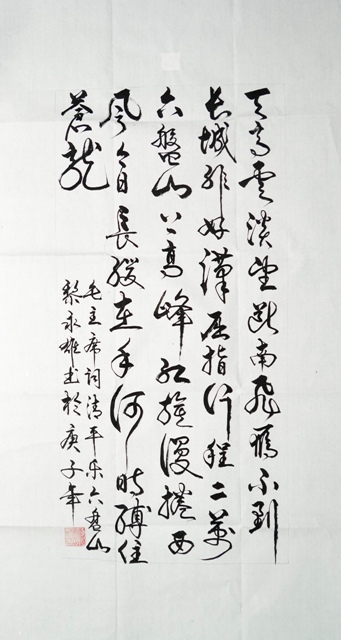 天高雲淡望断南飛雁不到
長城非好漢屈指行程二萬
六盤山上高峰红旗漫捲西
風今日長纓在手何時縛住
蒼龍
毛主席词清平乐六盘山
黎永雄书於庚子年